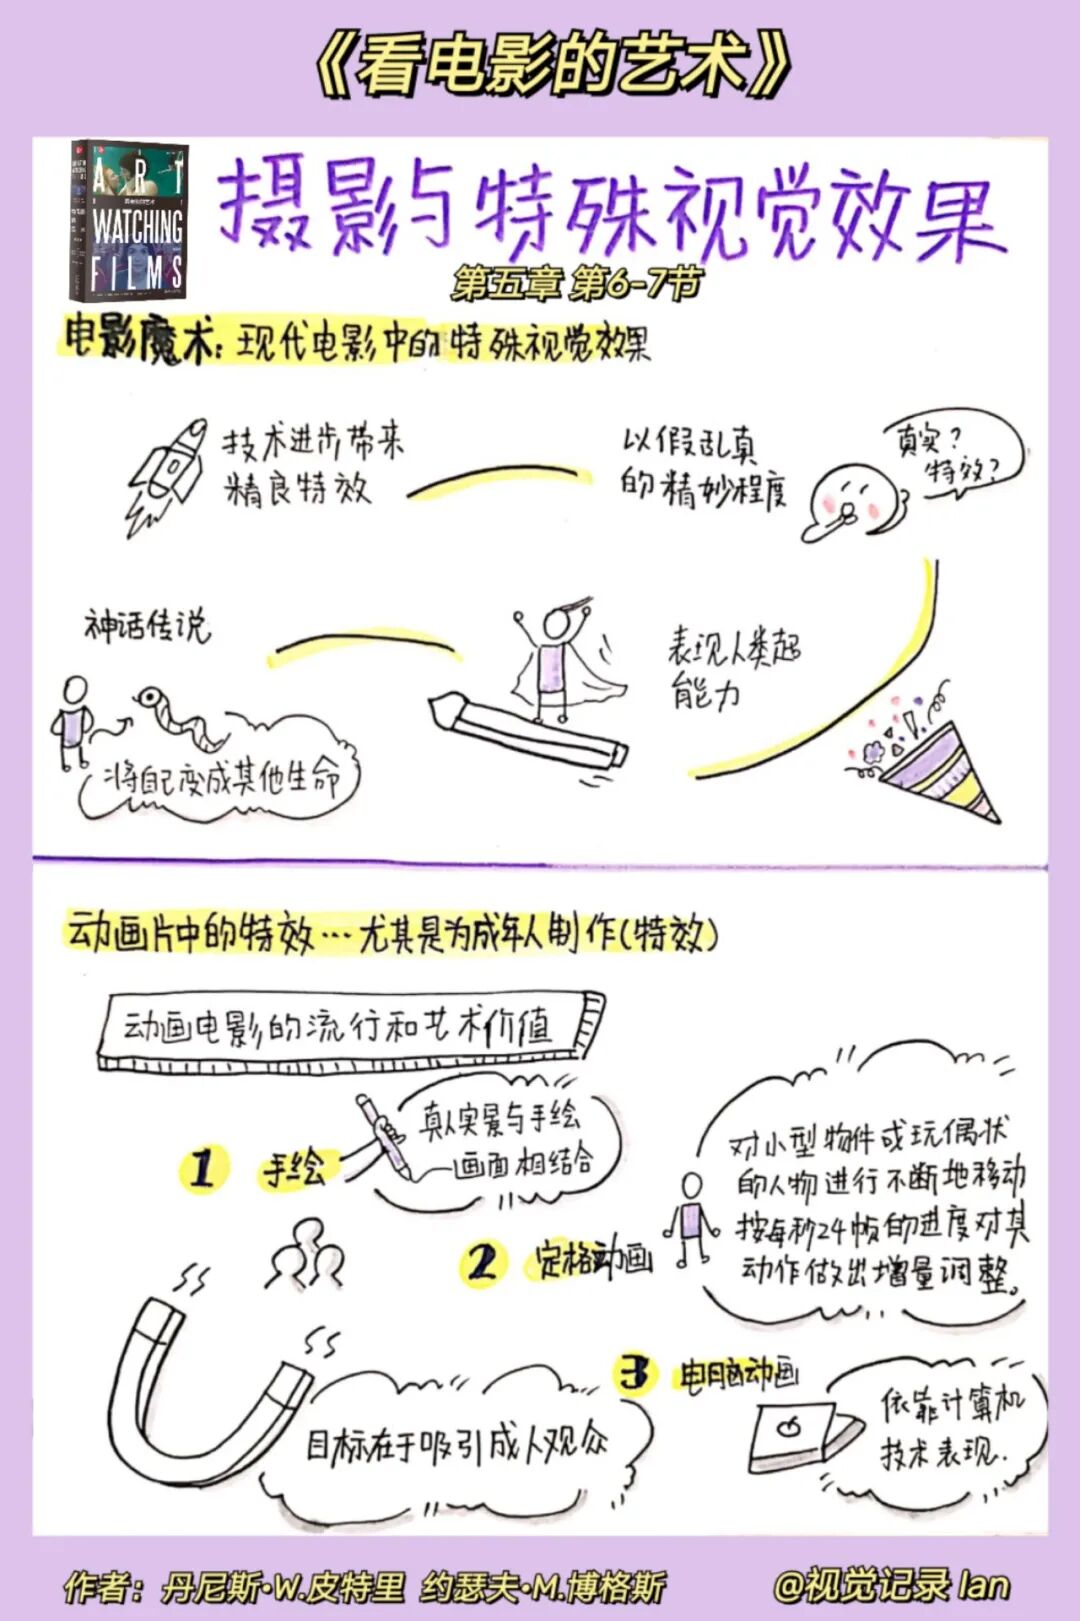 《看电影的艺术》
ART
WATCHING
FILMS
摄影与特殊视觉效果
第五章 第6-7节
电影魔术：现代电影中的特殊视觉效果
技术进步带来
精良特效
以假乱真
的精妙程度
真实？
特效？
神话传说
表现人类超
能力
将自己变成其他生命
动画片中的特效…尤其是为成年人制作(特效)
动画电影的流行和艺术价值
1 手绘
真人实景与手绘
画面相结合
2 定格动画
对小型物件或玩偶状
的人物进行不断地移动
按每秒24帧的进度对其
动作做出增量调整。
3 电脑动画
依靠计算机
技术表现.
目标在于吸引成人观众
作者：丹尼斯·W.皮特里 约瑟夫·M.博格斯
@视觉记录 Ian